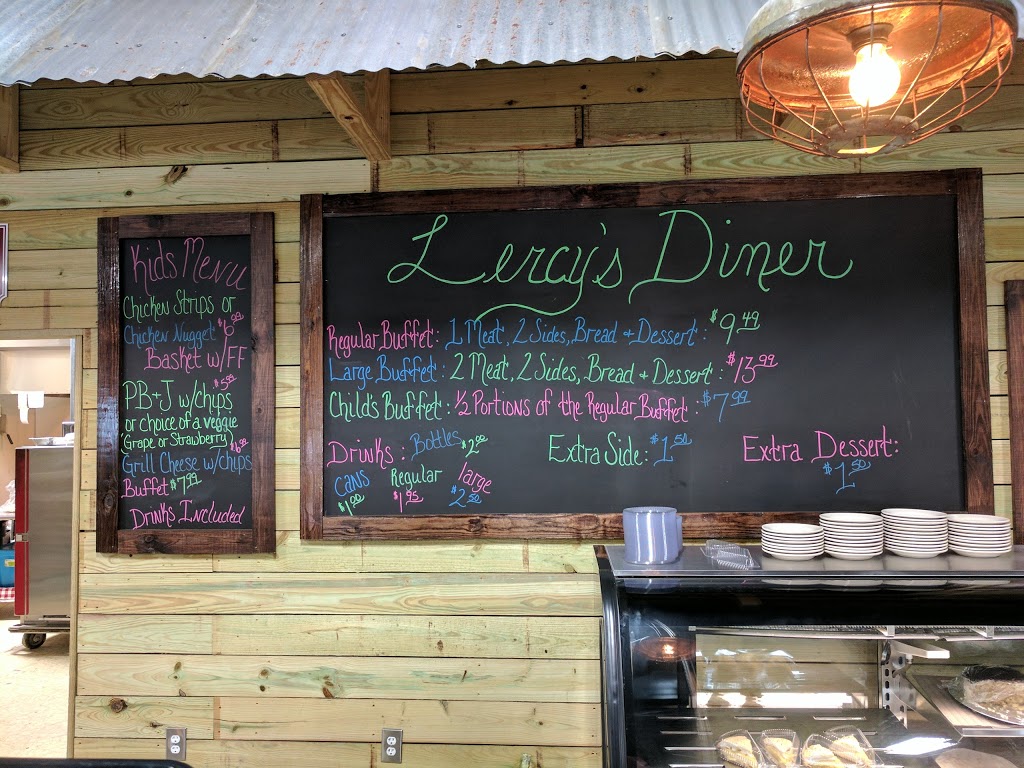 Kids Menu
Chicken Strips or
Chicken Nugget $6.99
Basket w/FF
$5.99
PB+J w/chips
or choice of a veggie
(Grape or Strawberry)
Grill Cheese w/chips
Buffet $7.99
Drinks Included
Lercy's Diner
Regular Buffet: 1 Meat, 2 Sides, Bread + Dessert: $9.49
Large Buffet: 2 Meat, 2 Sides, Bread + Dessert: $13.99
Child's Buffet: 1/2 Portions of the Regular Buffet: $7.99
Drinks: Bottles $2.00 Extra Side: $1.50 Extra Dessert:
$1.50
Cans Regular large
$1.00 $1.95 $2.50